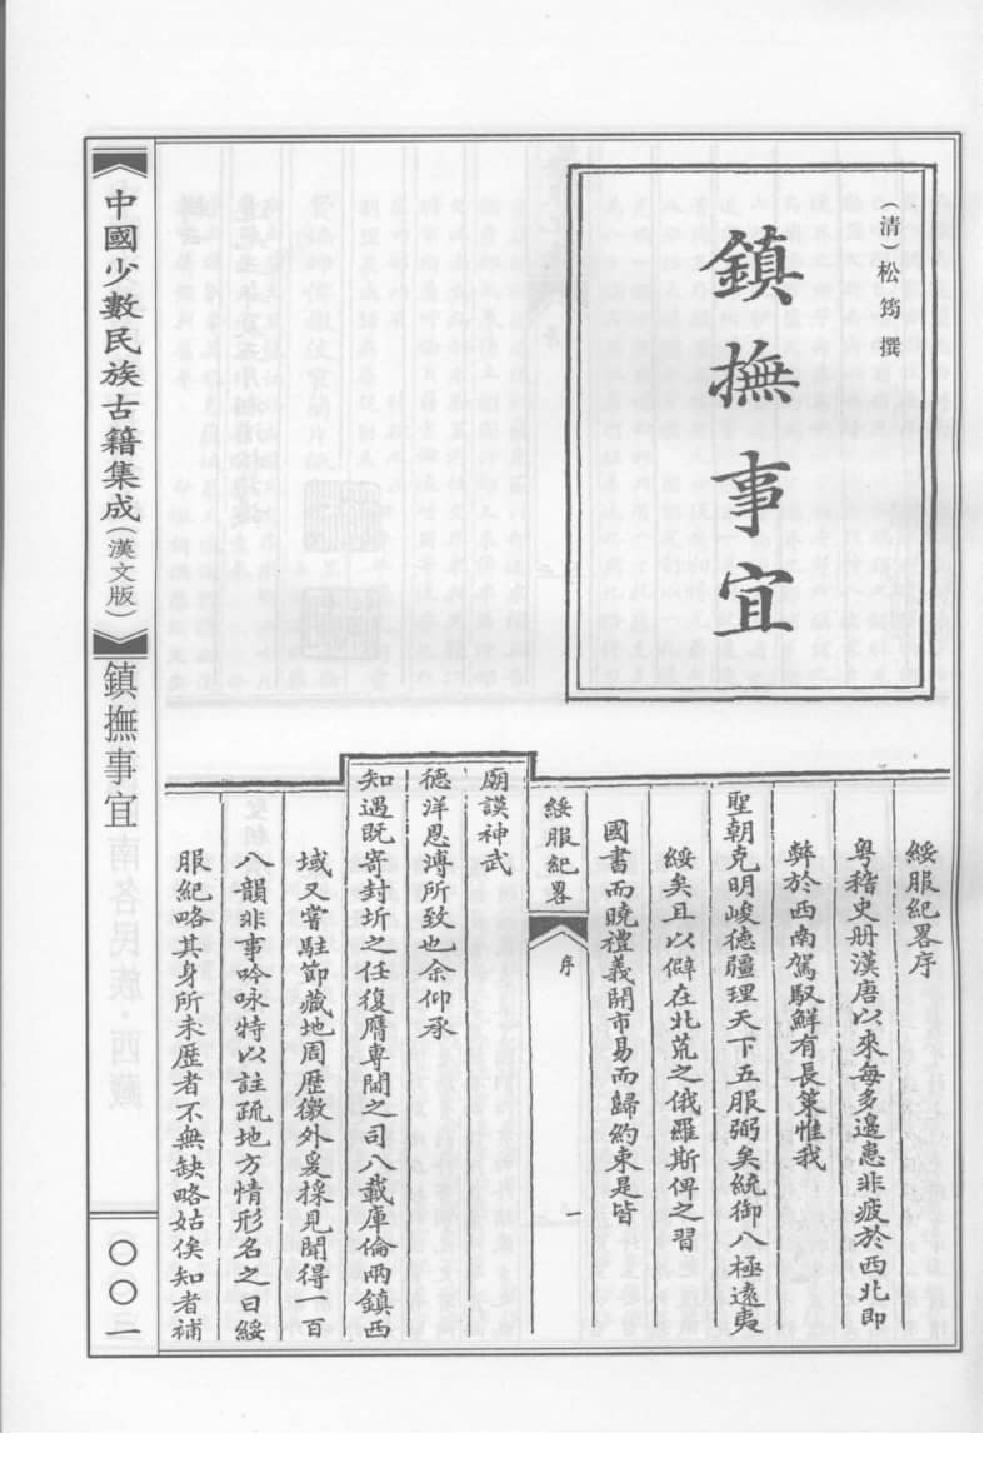 （清）松筠撰
鎮撫事宜
綏服紀畧序
粤稽史册漢唐以來每多邊患非疲於西北即
弊於西南駕馭鮮有長策惟我
聖朝克明峻德疆理天下五服弼矣統御八極遠夷
綏矣且以僻在北荒之俄羅斯俾之習
國書而曉禮義開市易而歸約束是皆
綏服紀畧 序 一
廟謨神武
德洋恩溥所致也余仰承
知遇既寄封圻之任復膺專閫之司八載庫倫兩鎮西
域又嘗駐節藏地周歷徼外爰採見聞得一百
八韻非事吟咏特以註疏地方情形名之曰綏
服紀略其身所未歷者不無缺略姑俟知者補
《中國少數民族古籍集成（漢文版）》
鎮撫事宜
〇〇一